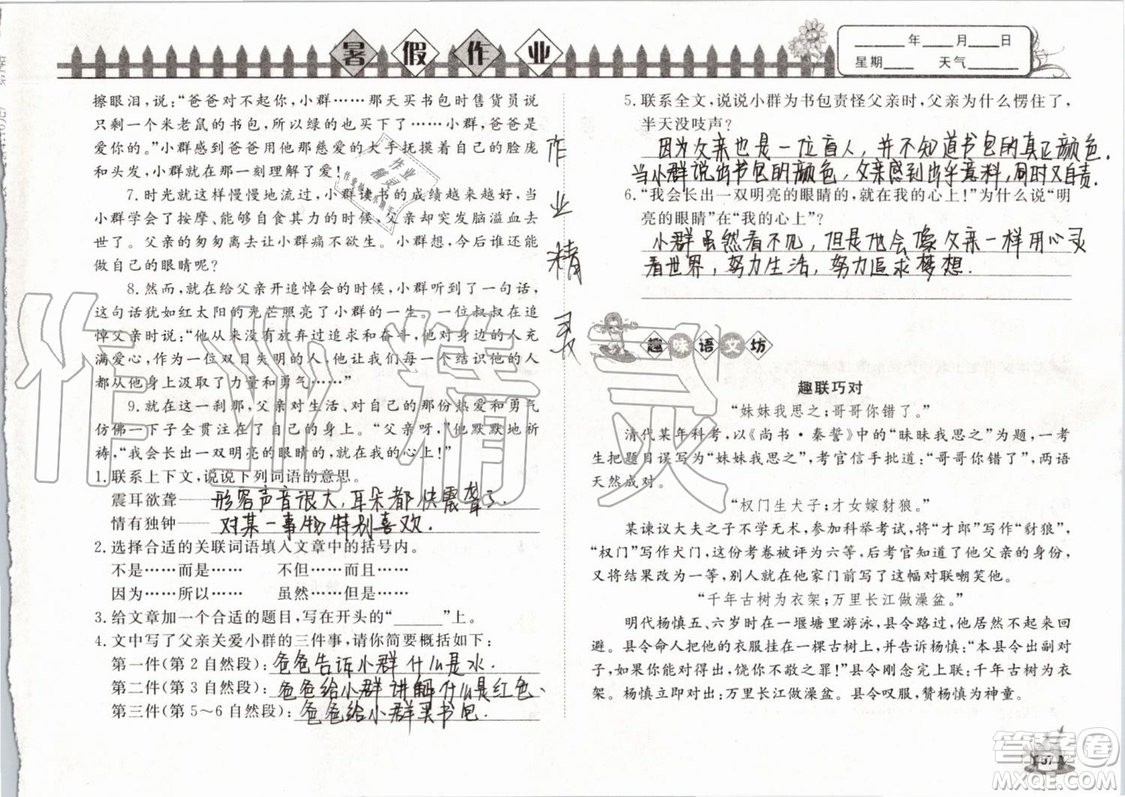 暑假作业
____年____月____日
星期____ 天气____
擦眼泪，说：“爸爸对不起你，小群……那天买书包时售货员说
只剩一个米老鼠的书包，所以绿的也买下了……小群，爸爸是
爱你的。”小群感到爸爸用他那慈爱的大手抚摸着自己的脸庞
和头发，小群在那一刻理解了爱！
7.时光就这样慢慢地流过，小群读书的成绩越来越好，
小群学会了按摩、能够健康地生活，父亲却突发脑溢血离开
了人世。父亲的匆匆离去让小群痛不欲生。小群想，今后谁还能
做自己的眼睛呢？
8.然而，就在给父亲开追悼会的时候，小群听到了一句话，
这句话犹如红太阳的光芒照亮了小群的一生。一位叔叔在追
悼父亲时说：“他从来没有看见过光明，但他对身边的人充
满爱心，作为一个双目失明的人，他是最优秀的，所有的人
都从他身上汲取了力量和勇气……”
9.就在这一刹那，父亲对生活、对自己的那种热爱和勇气
仿佛一下子全贯注在了小群的身上。“父亲，”他默默地祈
祷，“我会长出一双明亮的眼睛的，就在我的心上！”
1.联系上下文，说说下列词语的意思。
震耳欲聋——形容声音很大，耳朵都快震聋了.
情有独钟——对某一事物特别喜欢.
2.选择合适的关联词语填入文章中的括号内。
不是……而是…… 不但……而且……
因为……所以…… 虽然……但是……
3.给文章加一个合适的题目，写在开头的“______”上。
4.文中写了父亲关爱小群的三件事，请你简要概括如下：
第一件(第2自然段)：爸爸告诉小群什么是水.
第二件(第3自然段)：爸爸给小群讲解什么是红色、
第三件(第5~6自然段)：爸爸给小群买书包.
作业精灵
5.联系全文，说说小群为书包责怪父亲时，父亲为什么愣住了，
半天没吱声？
因为父亲也是一位盲人，并不知道书包的真正颜色.
当小群说出书包的颜色，父亲感到出乎意料，同时又自责.
6.“我会长出一双明亮的眼睛的，就在我的心上！”为什么说“明
亮的眼睛”在“我的心上”？
小群虽然看不见，但是他会像父亲一样用心灵
看世界，努力生活，努力追求梦想.
趣味语文坊
趣联巧对
“妹妹我思之；哥哥你错了。”
清代某年科考，以《尚书·秦誓》中的“昧昧我思之”为题，一考
生把题目误写为“妹妹我思之”，考官信手批道：“哥哥你错了”，两语
天然成对。
“权门生犬子；才女嫁豺狼。”
某谏议大夫之子不学无术，参加科举考试，将“才郎”写作“豺狼”，
“权门”写作犬门，这份考卷被评为六等，后考官知他父亲的身份，
又将结果改为一等，别人就在他家门前写了这幅对联嘲笑他。
“千年古树为衣架；万里长江做澡盆。”
明代杨慎五、六岁时在一堰塘里游泳，县令路过，他也没有回
避。县令命人把他的衣服挂在一棵古树上，并告诉杨慎：“本县令出副
对子，如果你能对得出，饶你不敬之罪！”县令刚念完上联：千年古树为衣
架。杨慎立即对出：万里长江做澡盆。县令叹服，赞杨慎为神童。
57
作业精灵
答案卷
MXQE.COM